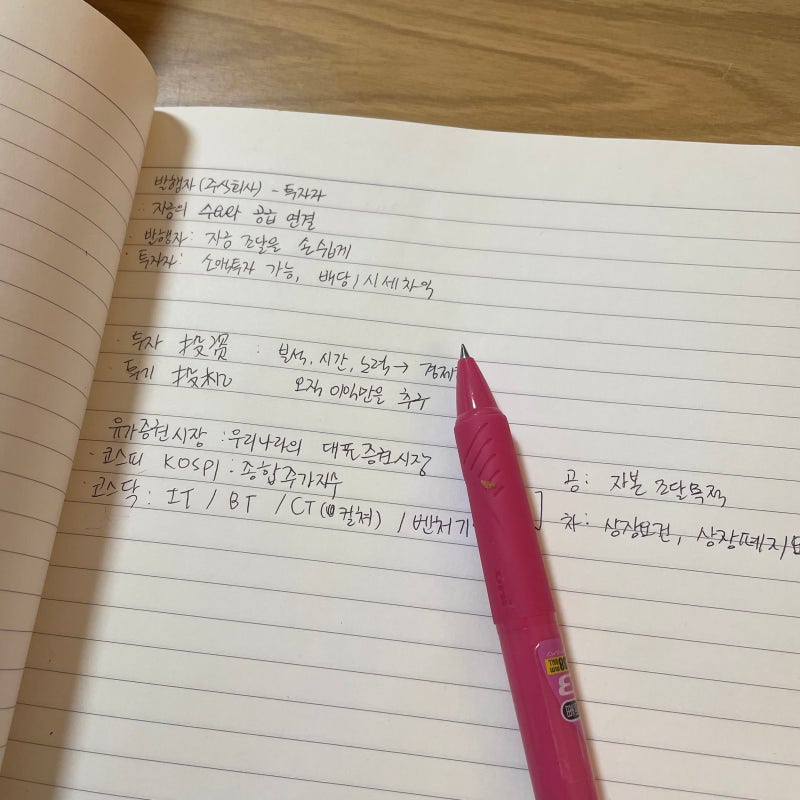 발행자(주식회사) - 투자자
: 자금의 수요와 공급 연결
· 발행자: 자금 조달을 손쉽게
· 투자자: 소액투자 가능, 배당/시세차익
· 투자 投資 : 분석, 시간, 노력 → 경제
· 투기 投机 오직 이익만을 추구
유가증권시장 : 우리나라의 대표 증권시장
· 코스피 KOSPI : 종합주가지수
· 코스닥 : IT / BT / CT(컬쳐) / 벤처기
] 공: 자본 조달목적
차: 상장요건, 상장폐지요
uni